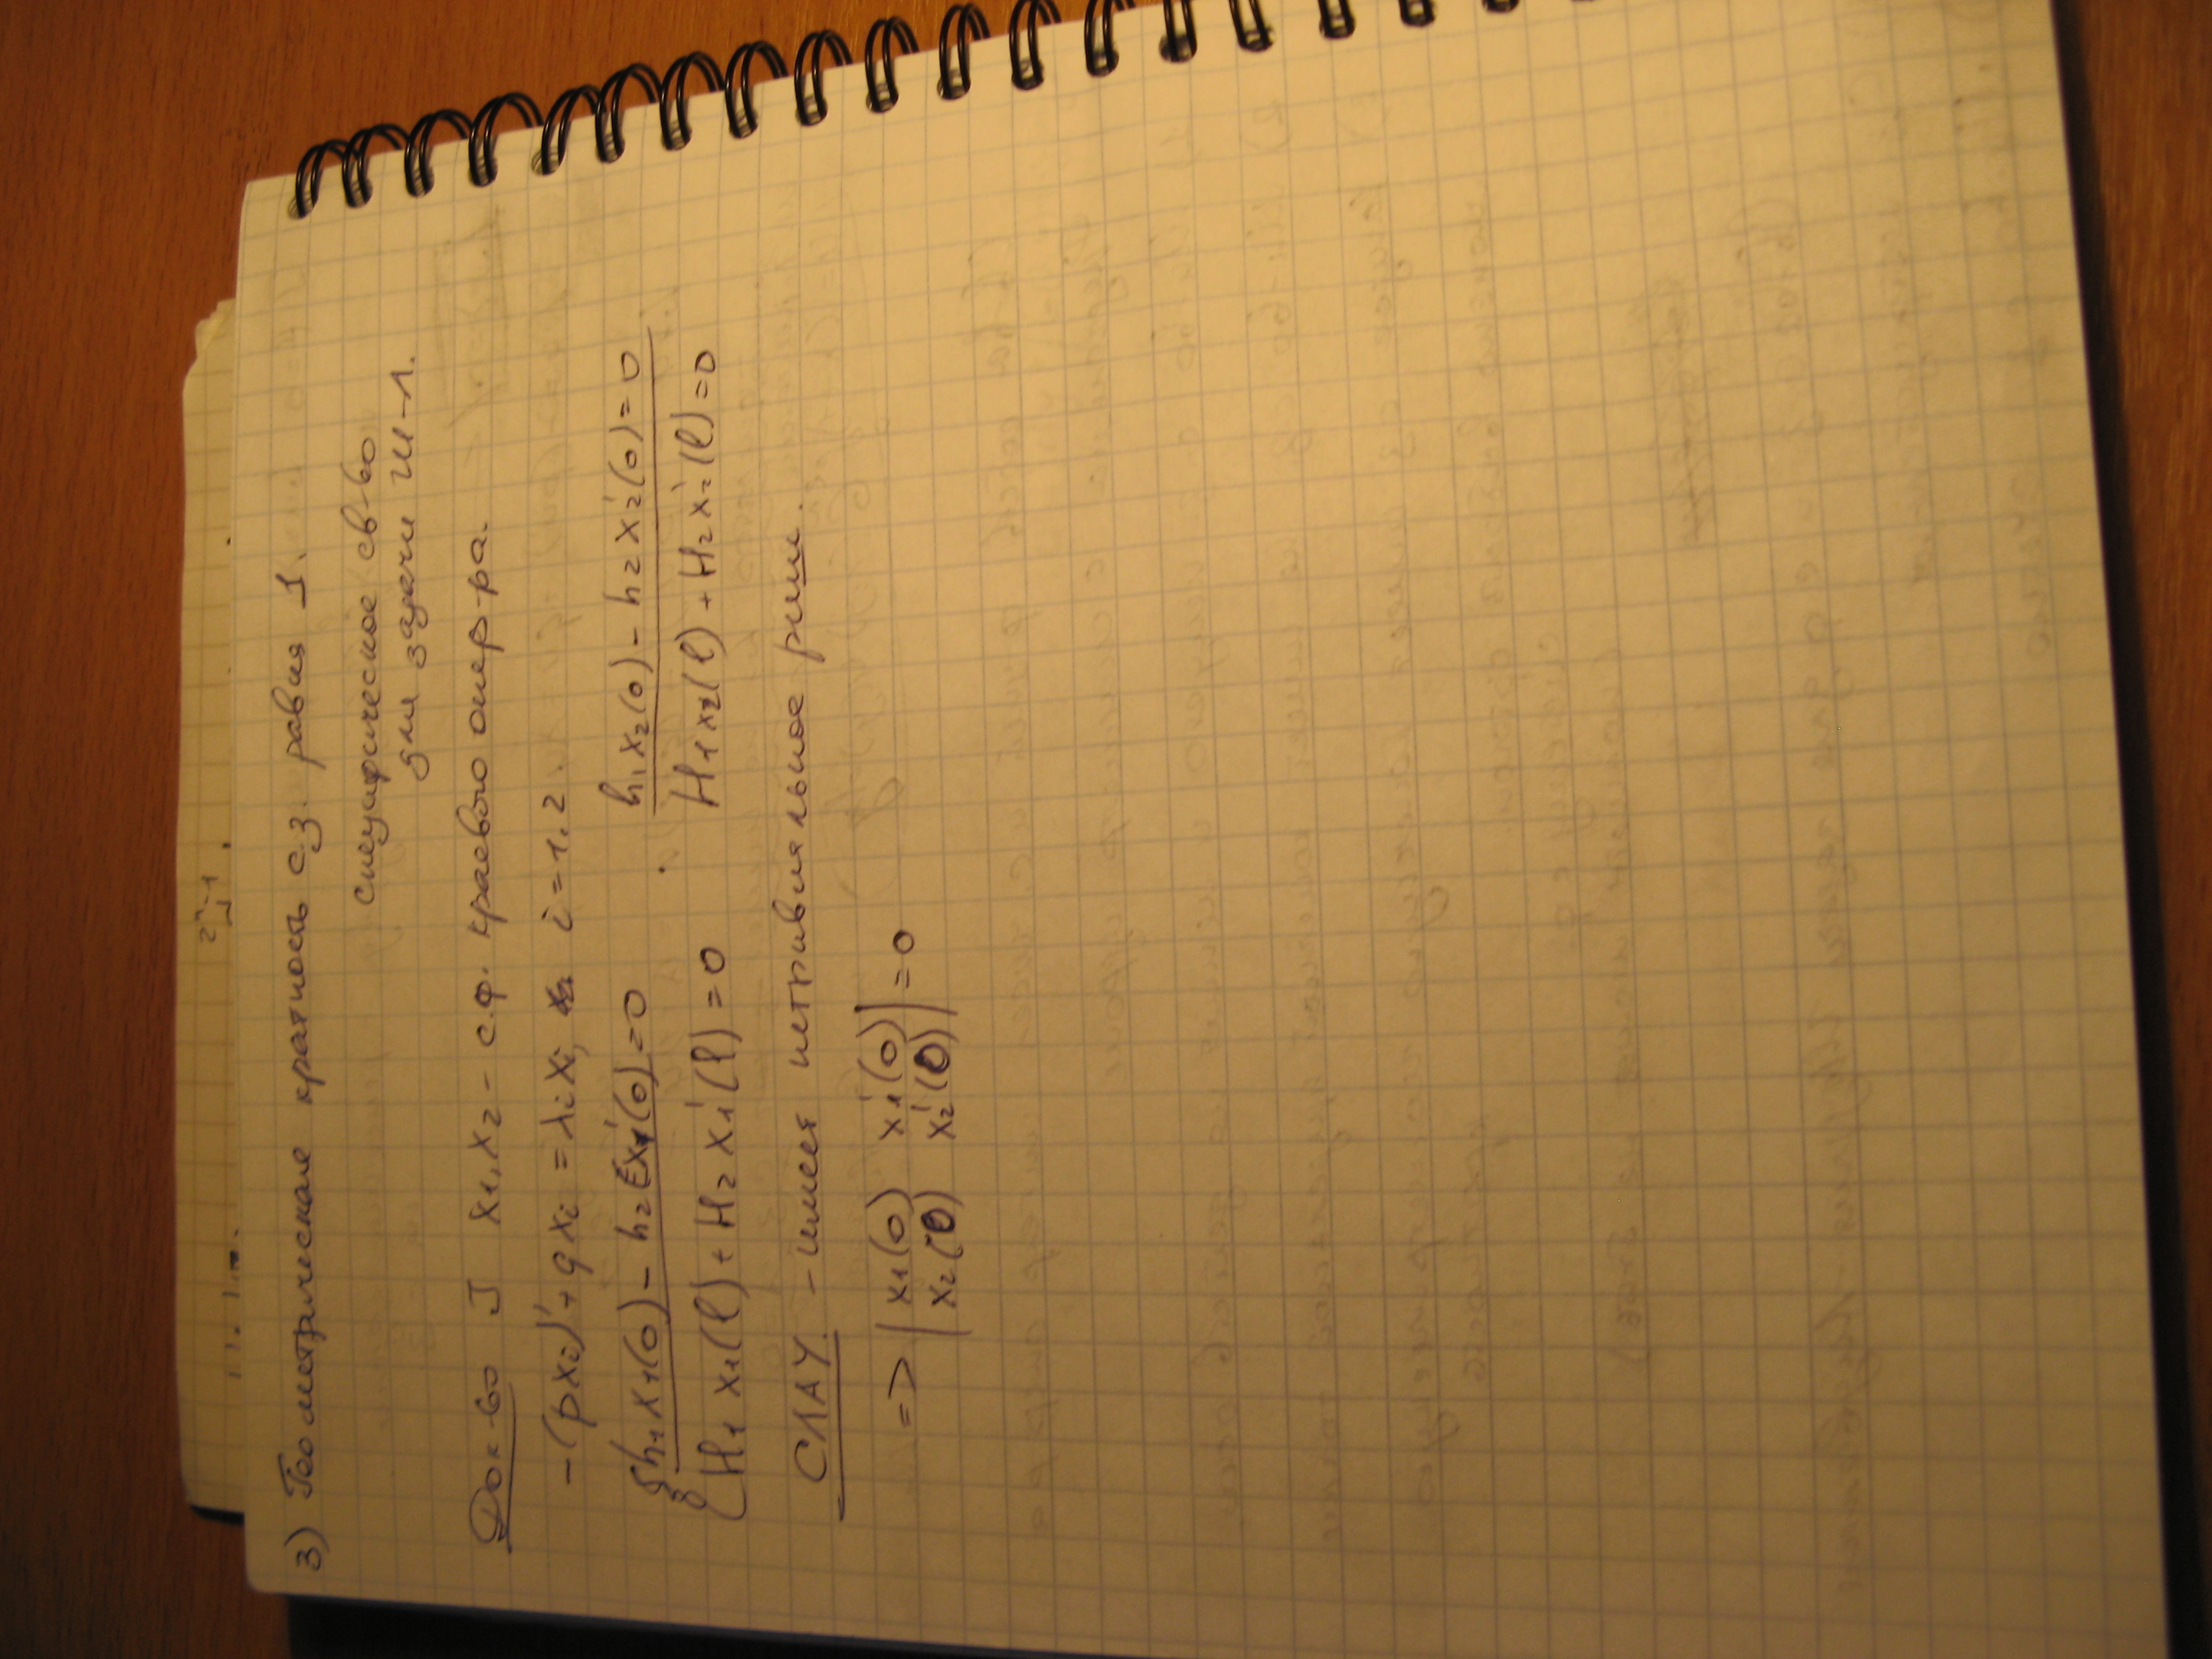 2ⁿ-1
3) Геометрическая кратность с.з. равна 1.
специфическое св-во
для задачи Ш-Л.
Док-во J x₁, x₂ - с.ф. краевого опер-ра.
-(pxᵢ')' + qxᵢ = λᵢxᵢ, i=1,2.
h₁x₁(0) - h₂x₁'(0)=0 h₁x₂(0) - h₂x₂'(0)=0
H₁x₁(l) + H₂x₁'(l)=0 H₁x₂(l) + H₂x₂'(l)=0
СЛАУ - имеет нетривиальное реш.
=> | x₁(0) x₁'(0) | =0
| x₂(0) x₂'(0) |